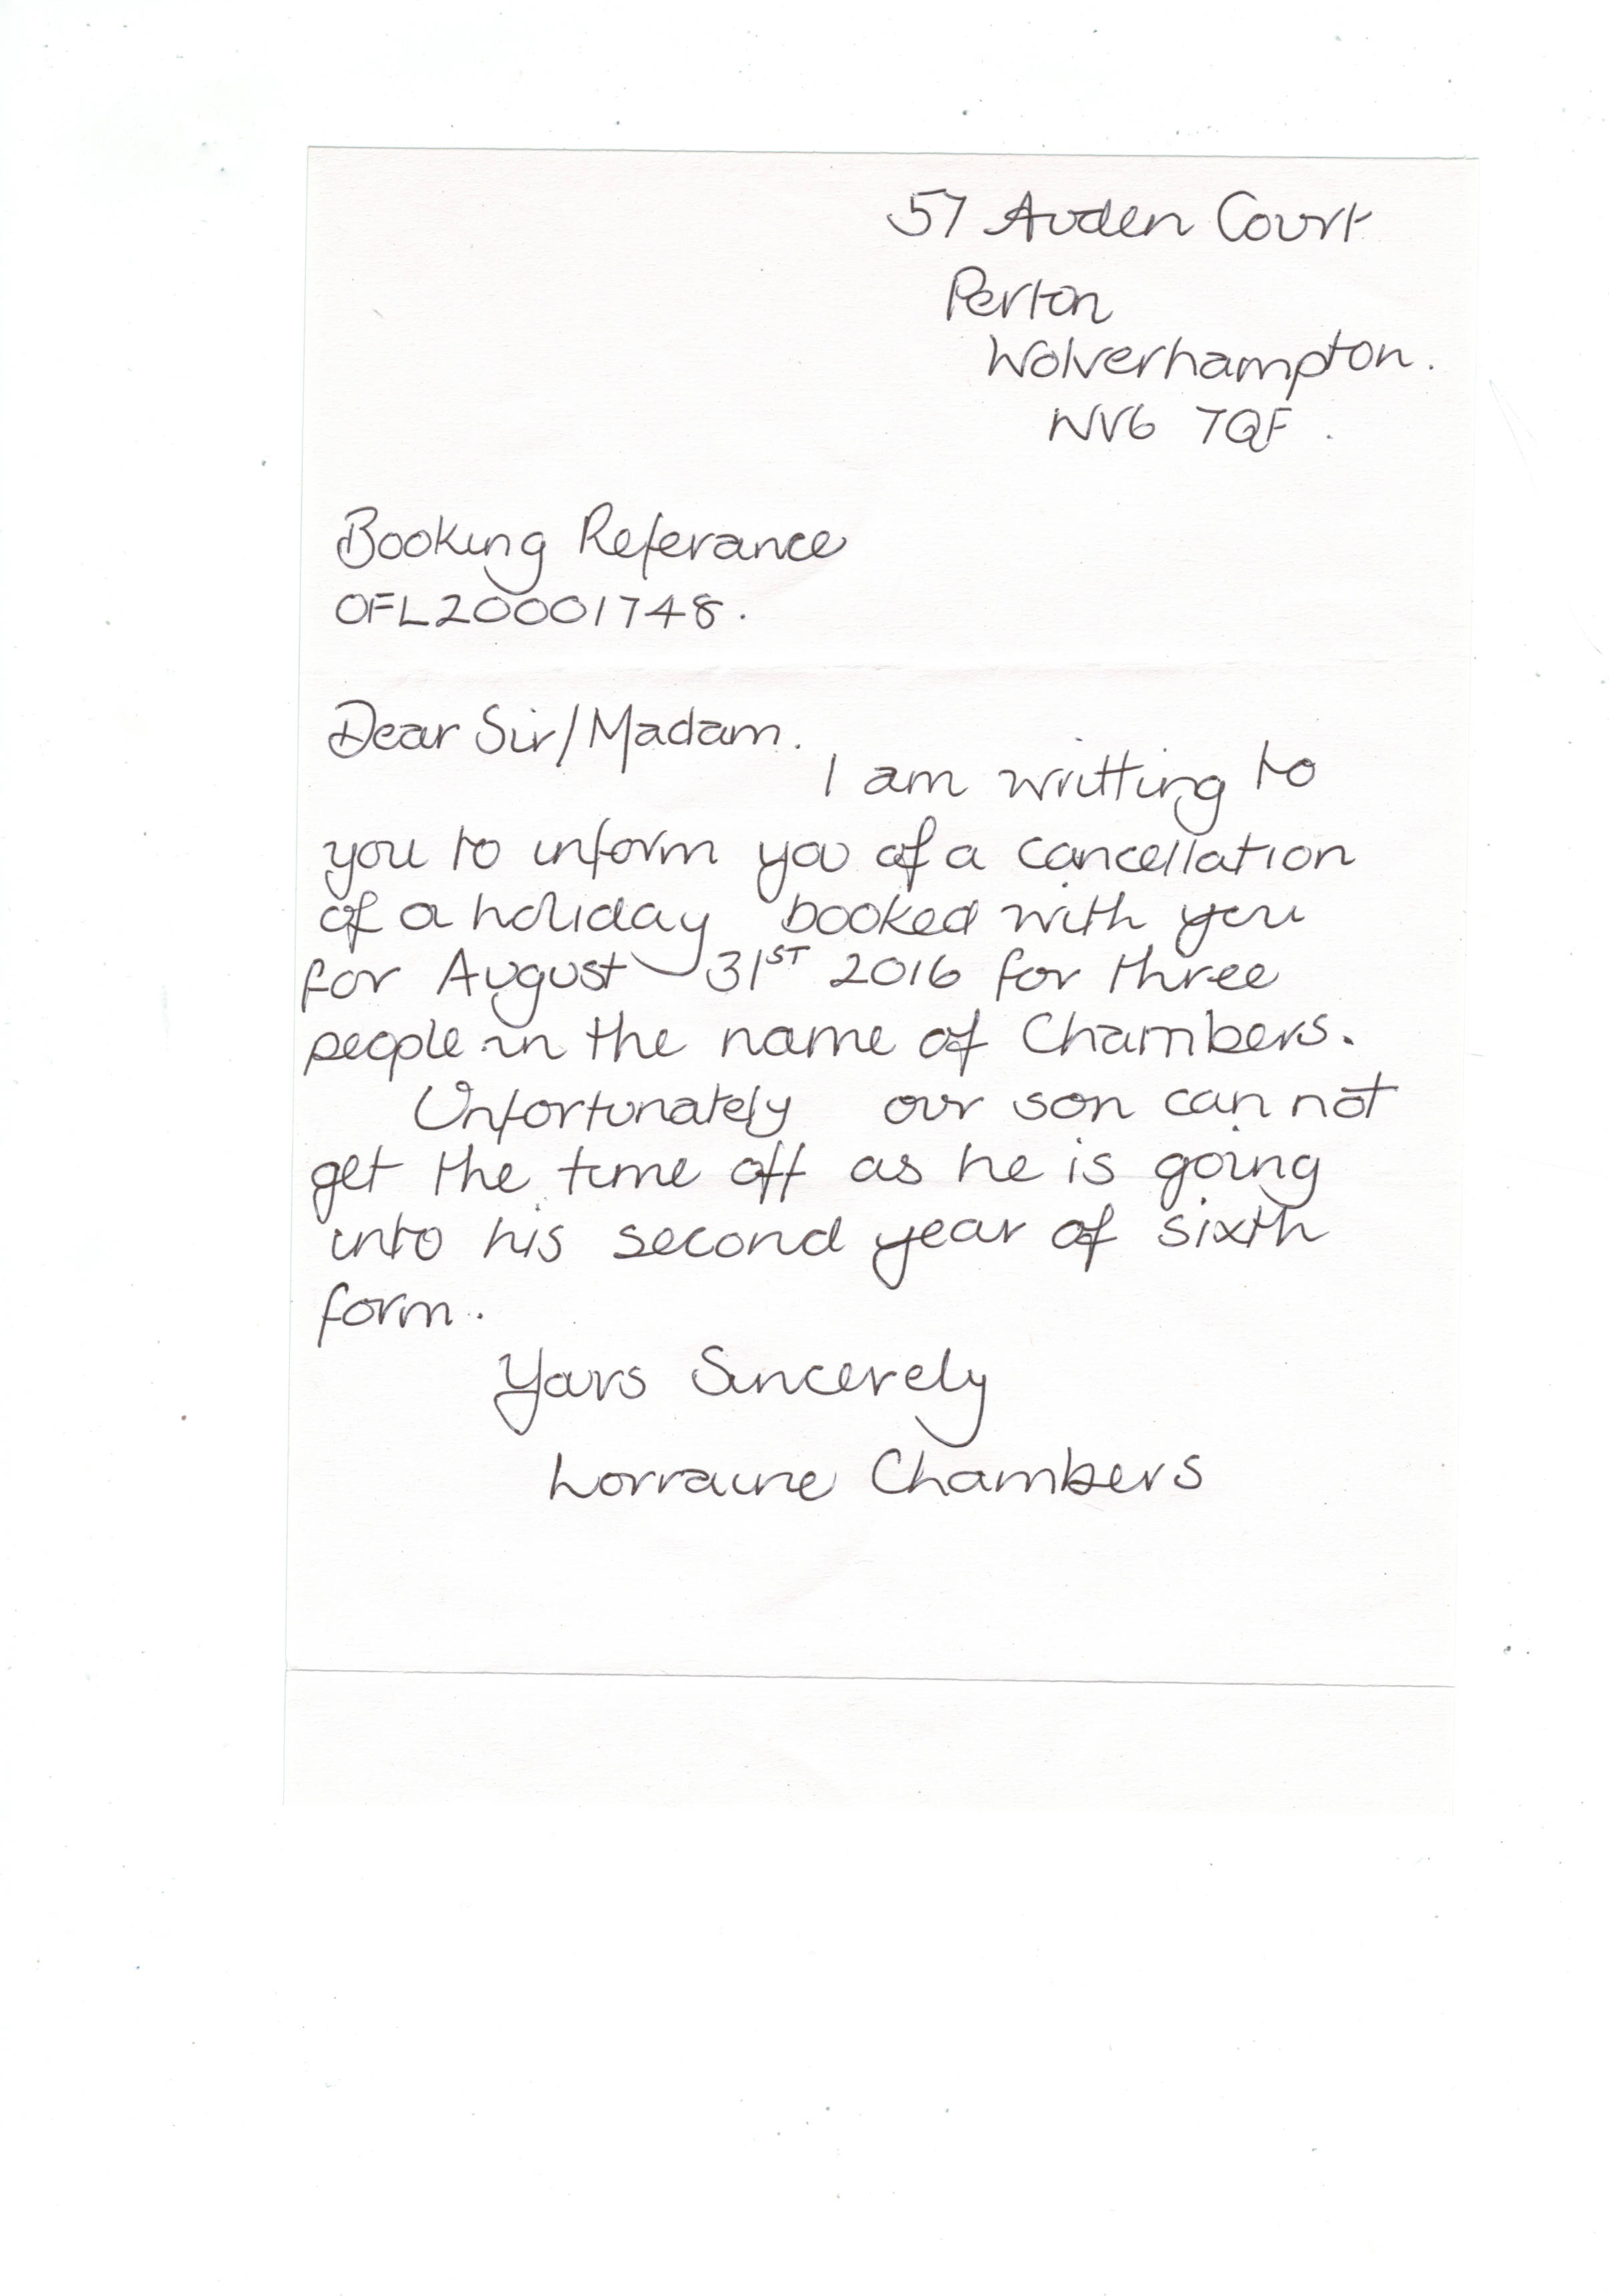 57 Auden Court
Perton
Wolverhampton.
WV6 7QF.
Booking Referance
OFL20001748.
Dear Sir/Madam.
I am writting to
you to inform you of a cancellation
of a holiday booked with you
for August 31ST 2016 for three
people in the name of Chambers.
Unfortunately our son can not
get the time off as he is going
into his second year of sixth
form.
Yours Sincerely
Lorraine Chambers